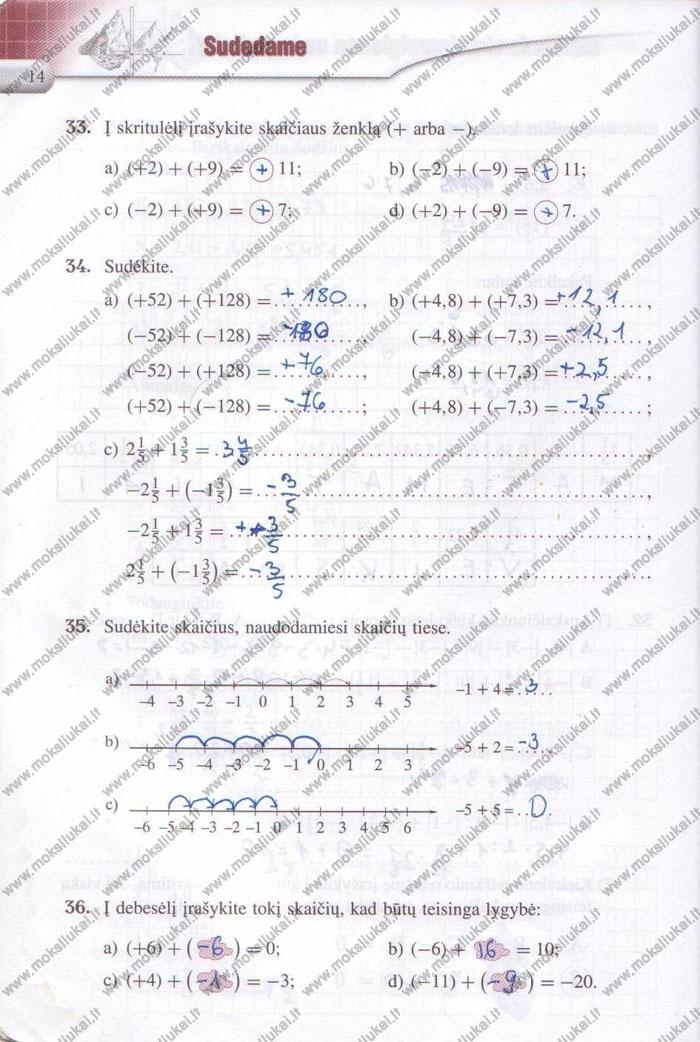 Sudedame
14
33. Į skritulėlį įrašykite skaičiaus ženklą (+ arba −).
a) (+2) + (+9) = + 11; b) (−2) + (−9) = + 11;
c) (−2) + (+9) = + 7; d) (+2) + (−9) = + 7.
34. Sudėkite.
a) (+52) + (+128) = +180, b) (+4,8) + (+7,3) = +12,1,
(−52) + (−128) = −180, (−4,8) + (−7,3) = −12,1,
(−52) + (+128) = +76, (−4,8) + (+7,3) = +2,5,
(+52) + (−128) = −76; (+4,8) + (−7,3) = −2,5;
c) 2 1/5 + 1 3/5 = 3 4/5,
−2 1/5 + (−1 3/5) = −3/5,
−2 1/5 + 1 3/5 = + 3/5,
2 1/5 + (−1 3/5) = −3/5
35. Sudėkite skaičius, naudodamiesi skaičių tiese.
a) −4 −3 −2 −1 0 1 2 3 4 5 −1 + 4 = 3
b) −6 −5 −4 −3 −2 −1 0 1 2 3 −5 + 2 = −3
c) −6 −5 −4 −3 −2 −1 0 1 2 3 4 5 6 −5 + 5 = 0
36. Į debesėlį įrašykite tokį skaičių, kad būtų teisinga lygybė:
a) (+6) + (−6) = 0; b) (−6) + 16 = 10;
c) (+4) + (−1) = −3; d) (−11) + (−9) = −20.
www.moksliukai.lt